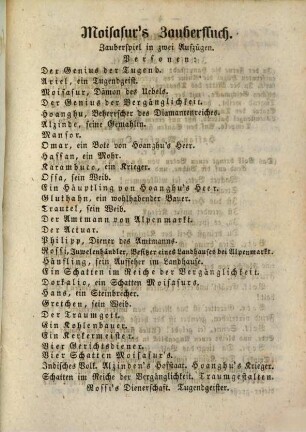 Moisasur's Zauberfluch.
Zauberspiel in zwei Aufzügen.
Personen:
Der Genius der Tugend.
Ariel, ein Tugendgeist.
Moisasur, Dämon des Uebels.
Der Genius der Vergänglichkeit.
Hoanghu, Beherrscher des Diamantenreiches.
Alzinde, seine Gemahlin.
Mansor.
Omar, ein Bote von Hoanghu's Heer.
Hassan, ein Mohr.
Karambuco, ein Krieger.
Ossa, sein Weib.
Ein Häuptling von Hoanghu's Heer.
Gluthahn, ein wohlhabender Bauer.
Trautel, sein Weib.
Der Amtmann von Alpenmarkt.
Der Actuar.
Philipp, Diener des Amtmanns.
Rossi, Juwelenhändler, Besitzer eines Landhauses bei Alpenmarkt.
Hänfling, sein Aufseher im Landhause.
Ein Schatten im Reiche der Vergänglichkeit.
Dorkalio, ein Schatten Moisasurs.
Hans, ein Steinbrecher.
Gretchen, sein Weib.
Der Traumgott.
Ein Kohlenbauer.
Ein Kerkermeister.
Vier Gerichtsdiener.
Vier Schatten Moisasur's.
Indisches Volk. Alzinden's Hofstaat. Hoanghu's Krieger.
Schatten im Reiche der Vergänglichkeit. Traumgestalten.
Rossi's Dienerschaft. Tugendgeister.